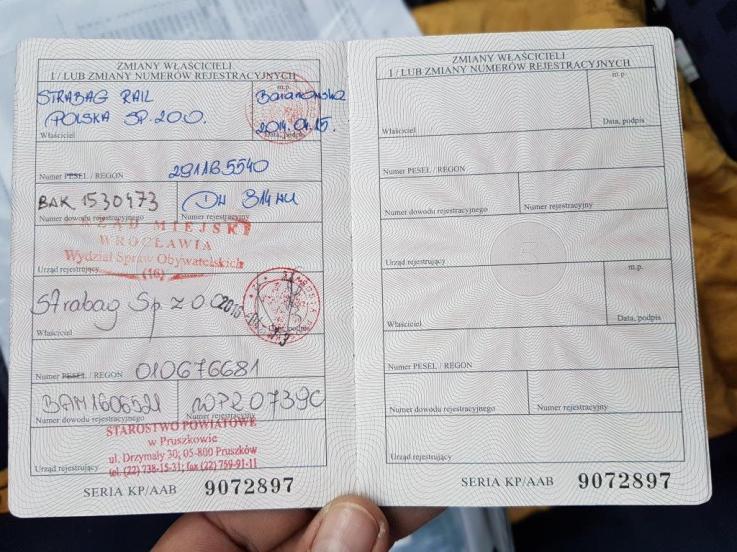 ZMIANY WŁAŚCICIELI
I / LUB ZMIANY NUMERÓW REJESTRACYJNYCH
STRABAG RAIL
POLSKA SP. Z O.O.
Właściciel
m.p.
2014.04.15.
Data, podpis
Numer PESEL / REGON 2911B5540
BAK 1530473
Numer dowodu rejestracyjnego
DW 314HU
Numer rejestracyjny
URZĄD MIEJSKI
WROCŁAWIA
Wydział Spraw Obywatelskich
(16)
Urząd rejestrujący
Strabag Sp z o o
Właściciel
Data, podpis
Numer PESEL / REGON 010676681
BAM1606521
Numer dowodu rejestracyjnego
WPR 0739C
Numer rejestracyjny
STAROSTWO POWIATOWE
w Pruszkowie
ul. Drzymały 30; 05-800 Pruszków
tel. (22) 738-15-31; fax (22) 759-91-11
Urząd rejestrujący
SERIA KP/AAB 9072897
ZMIANY WŁAŚCICIELI
I / LUB ZMIANY NUMERÓW REJESTRACYJNYCH
m.p.
Właściciel
Data, podpis
Numer PESEL / REGON
Numer dowodu rejestracyjnego
Numer rejestracyjny
Urząd rejestrujący
m.p.
Właściciel
Data, podpis
Numer PESEL / REGON
Numer dowodu rejestracyjnego
Numer rejestracyjny
Urząd rejestrujący
SERIA KP/AAB 9072897